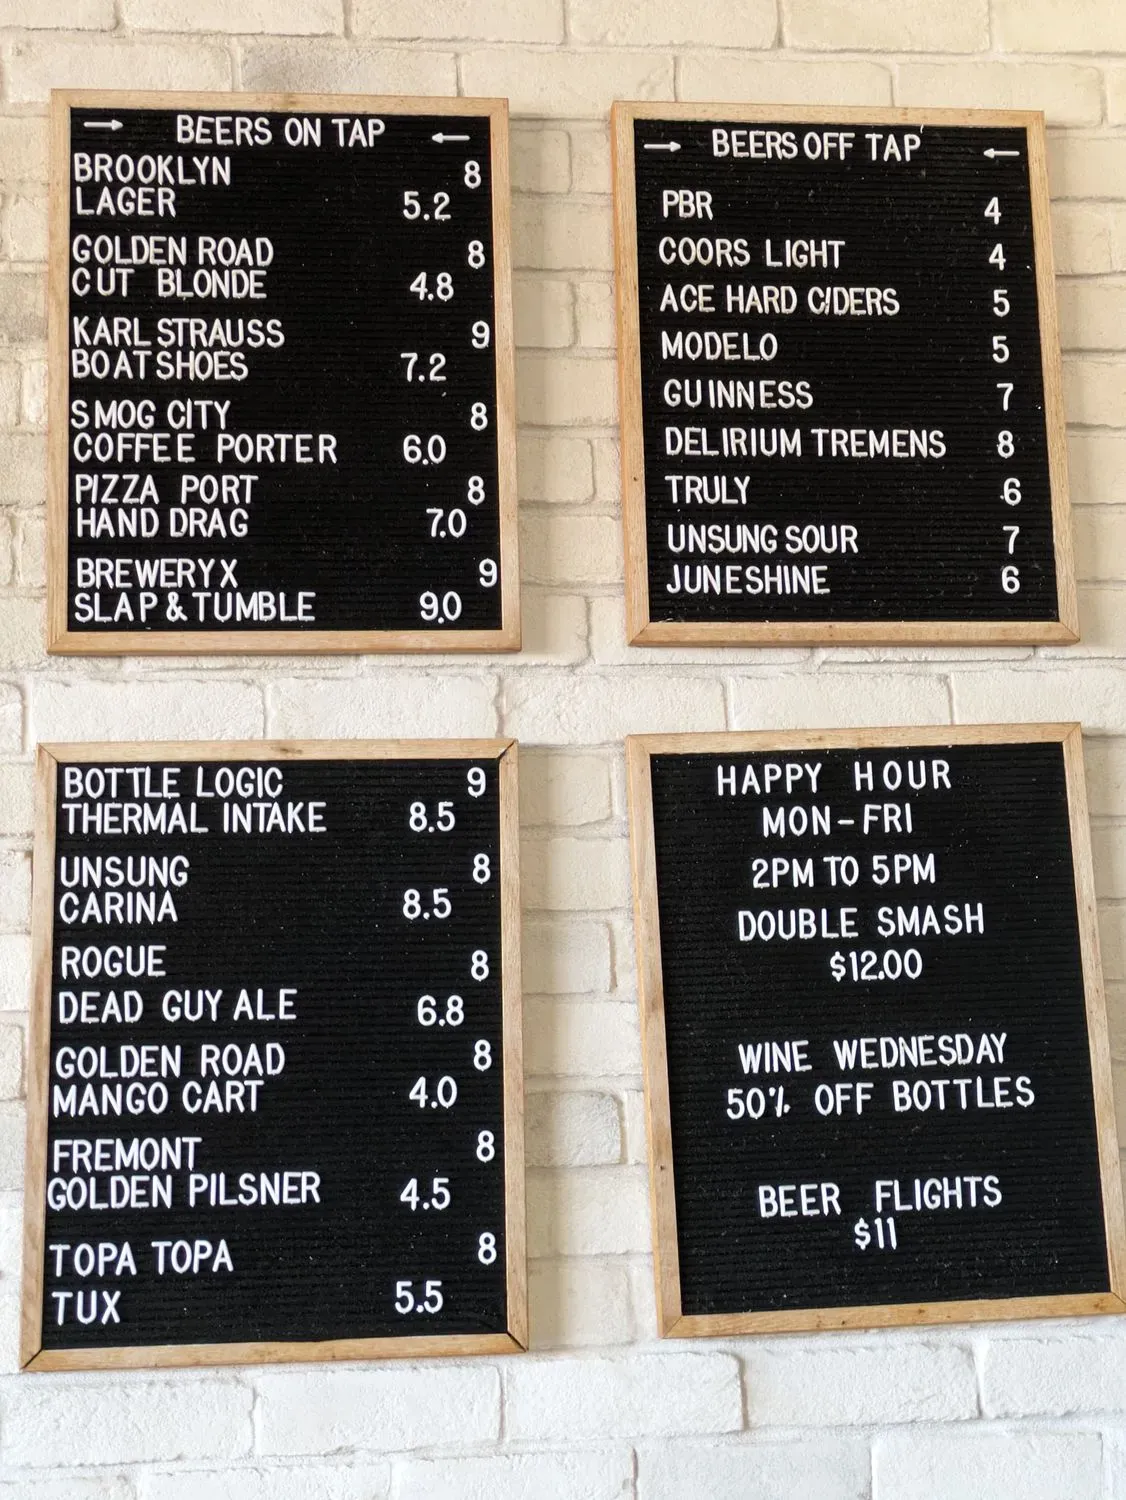 → BEERS ON TAP ←
BROOKLYN 8
LAGER 5.2
GOLDEN ROAD 8
CUT BLONDE 4.8
KARL STRAUSS 9
BOATSHOES 7.2
SMOG CITY 8
COFFEE PORTER 6.0
PIZZA PORT 8
HAND DRAG 7.0
BREWERY X 9
SLAP & TUMBLE 9.0
→ BEERS OFF TAP ←
PBR 4
COORS LIGHT 4
ACE HARD CIDERS 5
MODELO 5
GUINNESS 7
DELIRIUM TREMENS 8
TRULY 6
UNSUNG SOUR 7
JUNESHINE 6
BOTTLE LOGIC 9
THERMAL INTAKE 8.5
UNSUNG 8
CARINA 8.5
ROGUE 8
DEAD GUY ALE 6.8
GOLDEN ROAD 8
MANGO CART 4.0
FREMONT 8
GOLDEN PILSNER 4.5
TOPA TOPA 8
TUX 5.5
HAPPY HOUR
MON-FRI
2PM TO 5PM
DOUBLE SMASH
$12.00
WINE WEDNESDAY
50% OFF BOTTLES
BEER FLIGHTS
$11